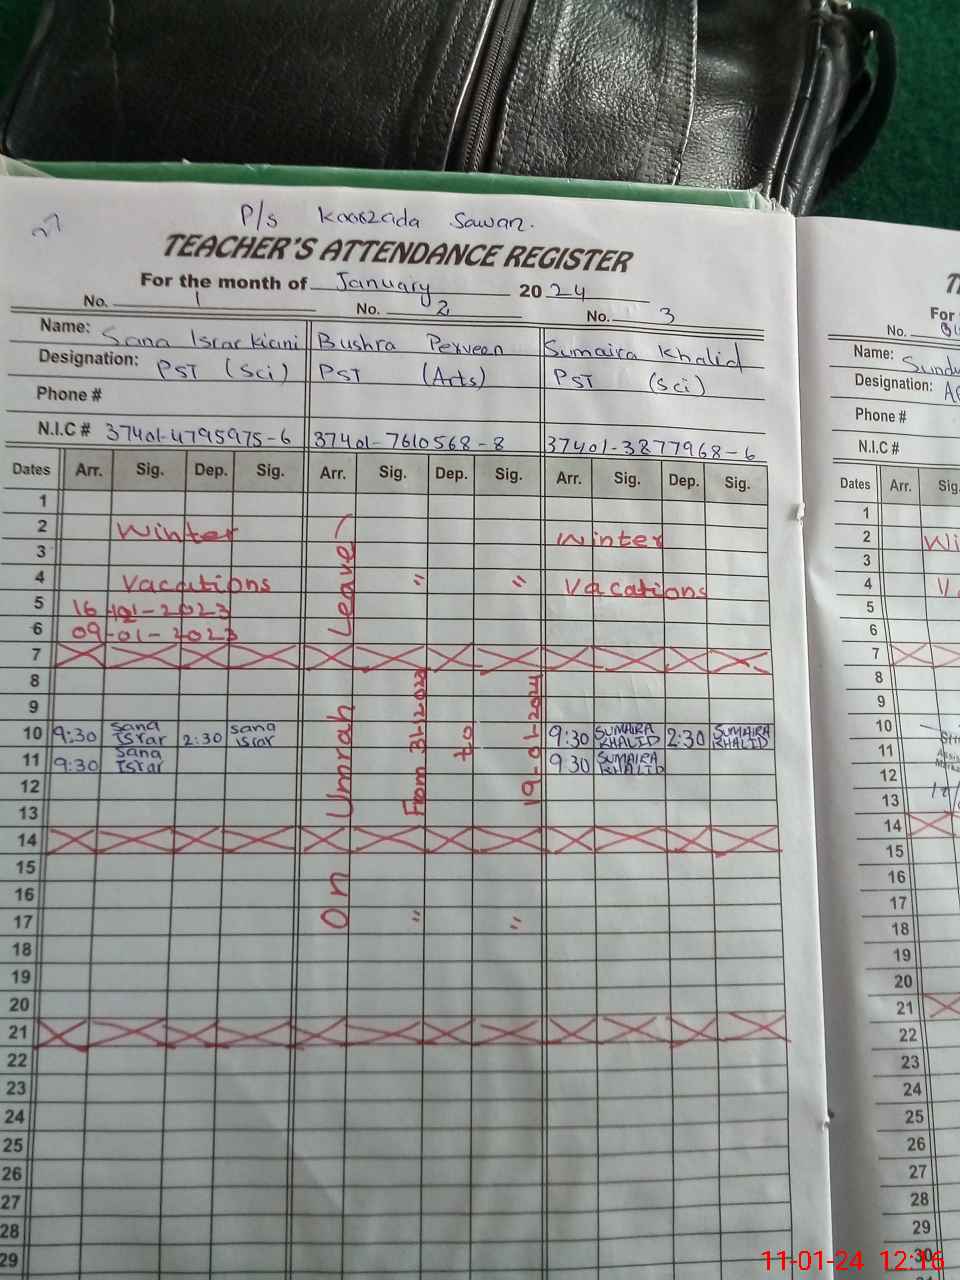 P/s Kaaszada Sawan.
TEACHER'S ATTENDANCE REGISTER
For the month of January 2024
No. 1 No. 2 No. 3
Name: Sana Israr kiani Bushra Perveen Sumaira Khalid
Designation: PST (Sci) PST (Arts) PST (Sci)
Phone #
N.I.C # 37401-4795975-6 37401-7610568-8 37401-3877968-6
Dates Arr. Sig. Dep. Sig. Arr. Sig. Dep. Sig. Arr. Sig. Dep. Sig.
1
2 Winter Winter
3
4 Vacations " " Vacations
5 16-12-2023
6 09-01-2023
7
8
9
10 9:30 Sana Israr 2:30 Sana Israr 9:30 SUMAIRA KHALID 2:30 SUMAIRA KHALID
11 9:30 Sana Israr 9 30 SUMAIRA KHALID
12
13
14
15
16
17 " "
18
19
20
21
22
23
24
25
26
27
28
29
On Umrah Leave
From 31-12023
to
19-01-2024
For
No.
Name: Sundu
Designation:
Phone #
N.I.C #
Dates Arr. Sig.
1
2 Wi
3
4 V
5
6
7
8
9
10
11
12
13
14
15
16
17
18
19
20
21
22
23
24
25
26
27
28
29
30
11-01-24 12:16